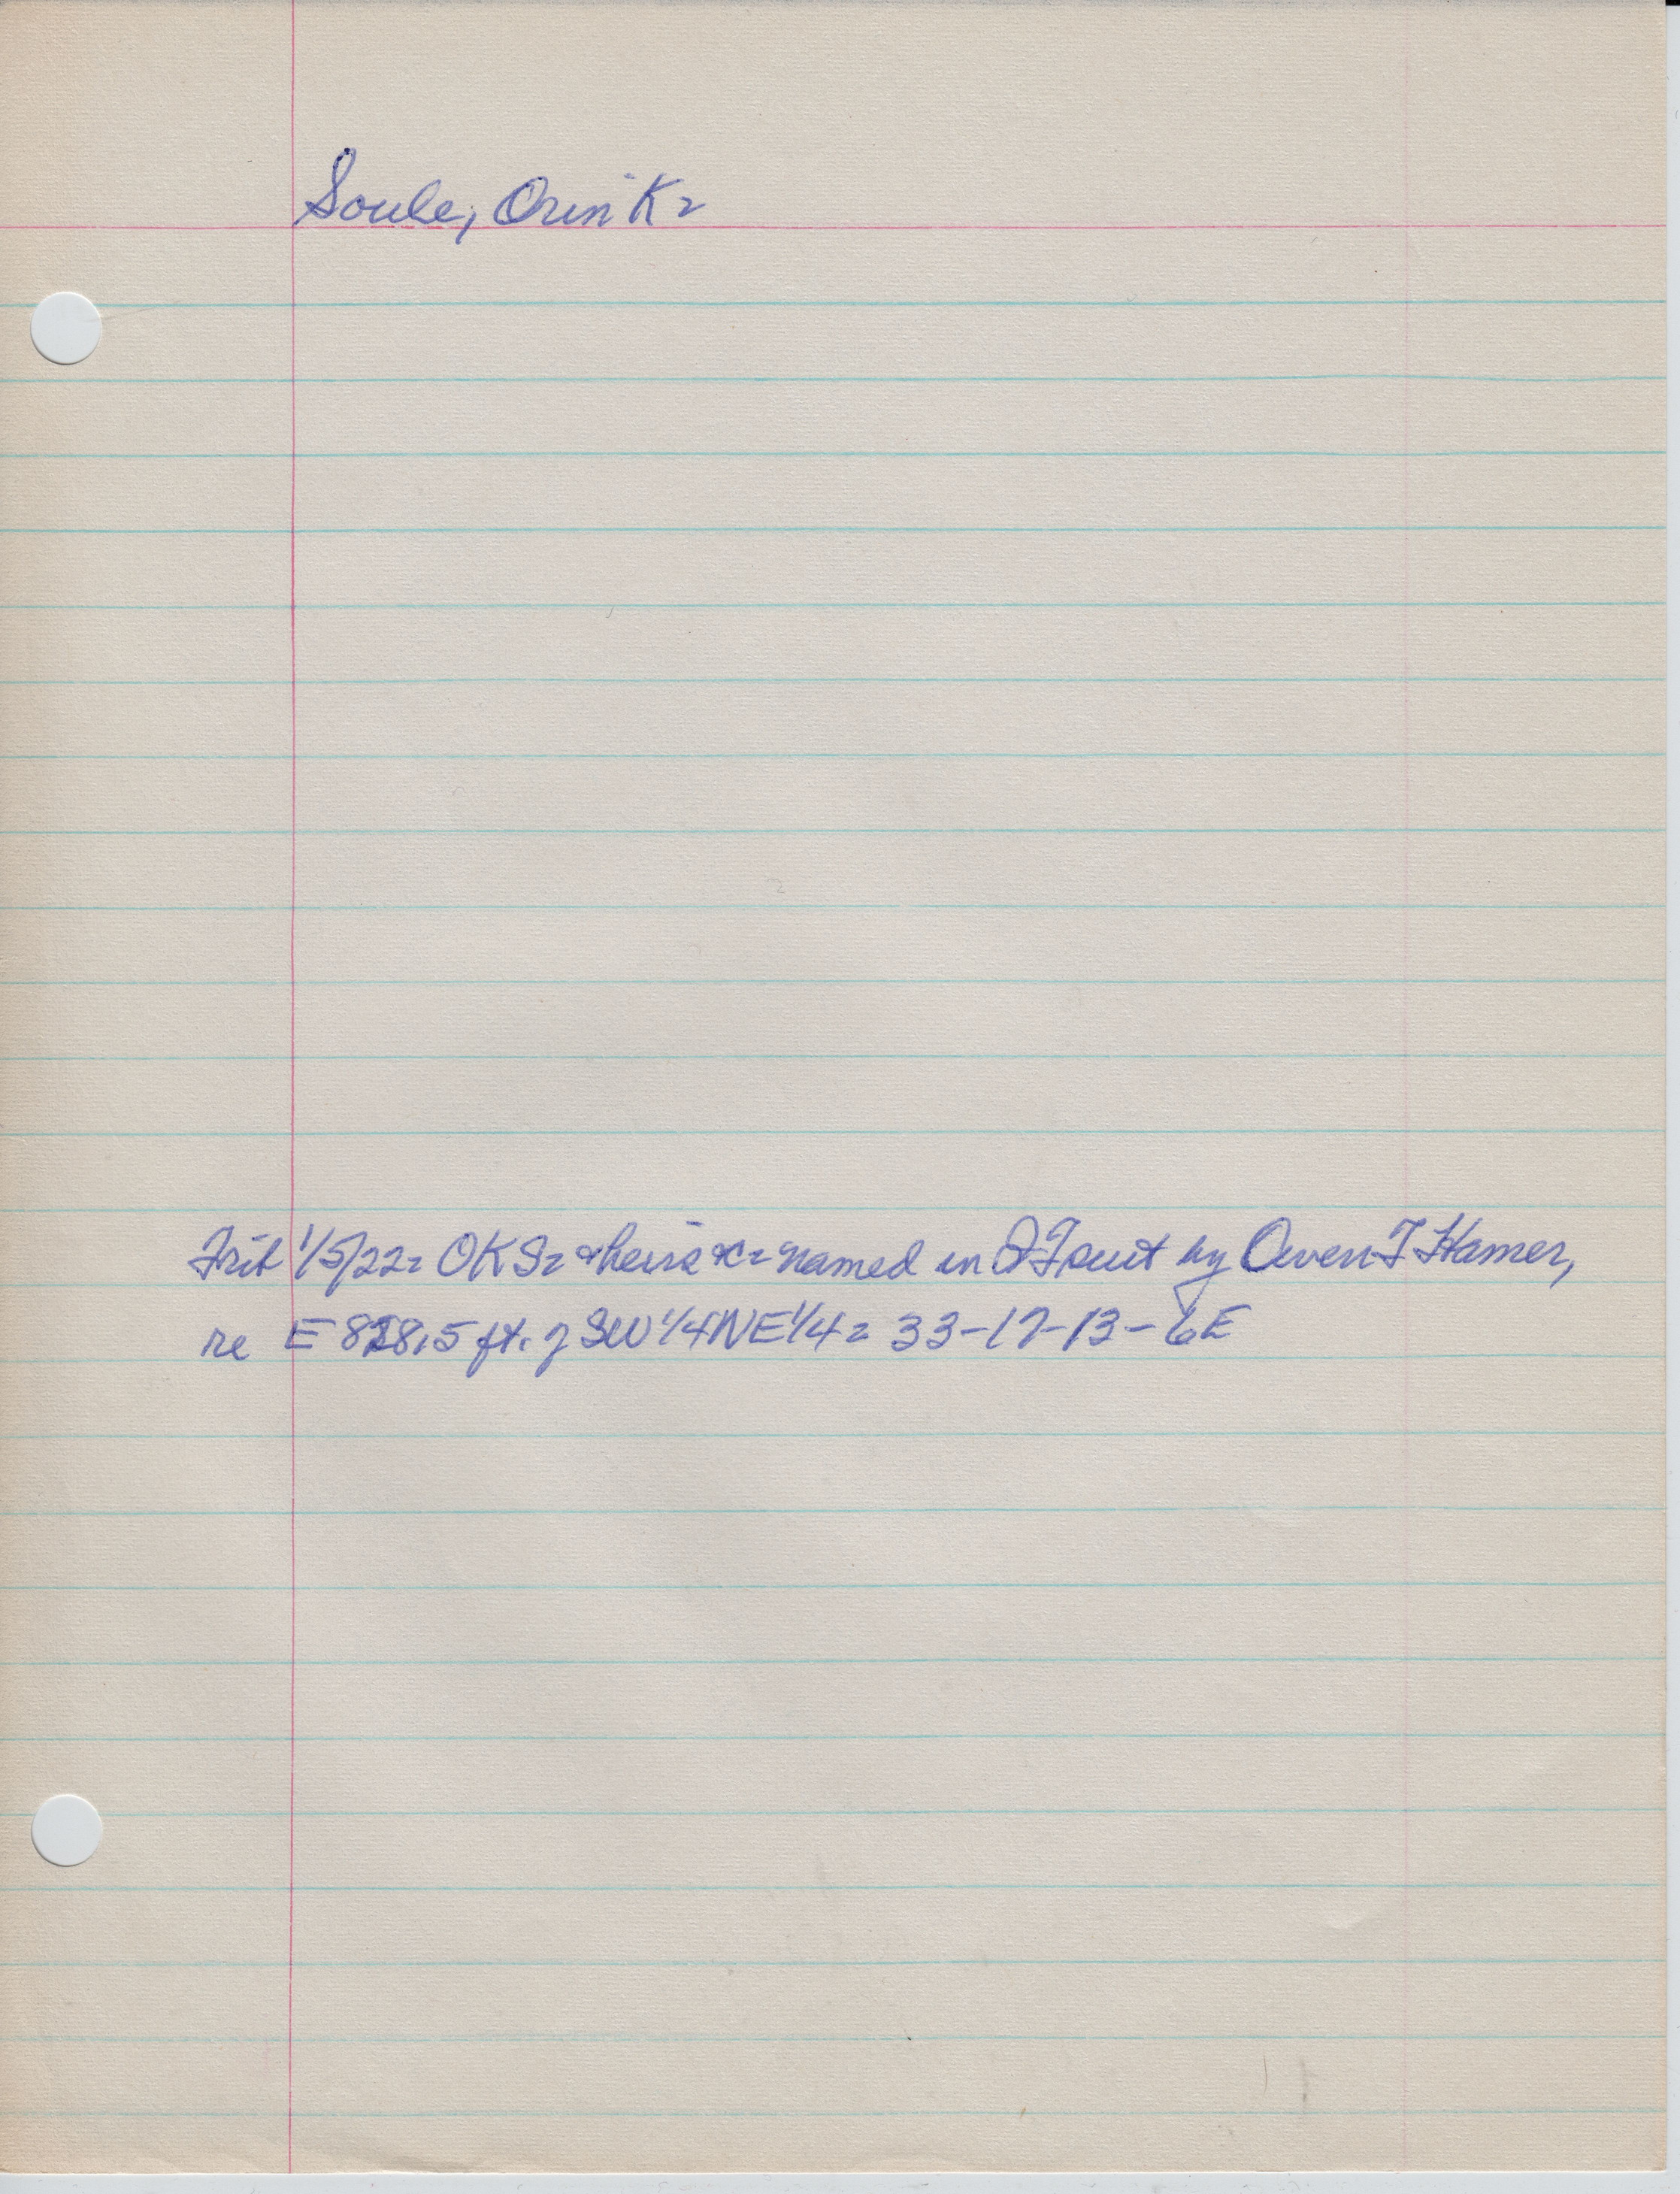 Soule, Orin K=
Trib 1/5/22= OKS= & heirs &c= named in QT suit by Owen T Hamer,
re E 828.5 ft. of SW 1/4 NE 1/4 = 33-17-13-6E